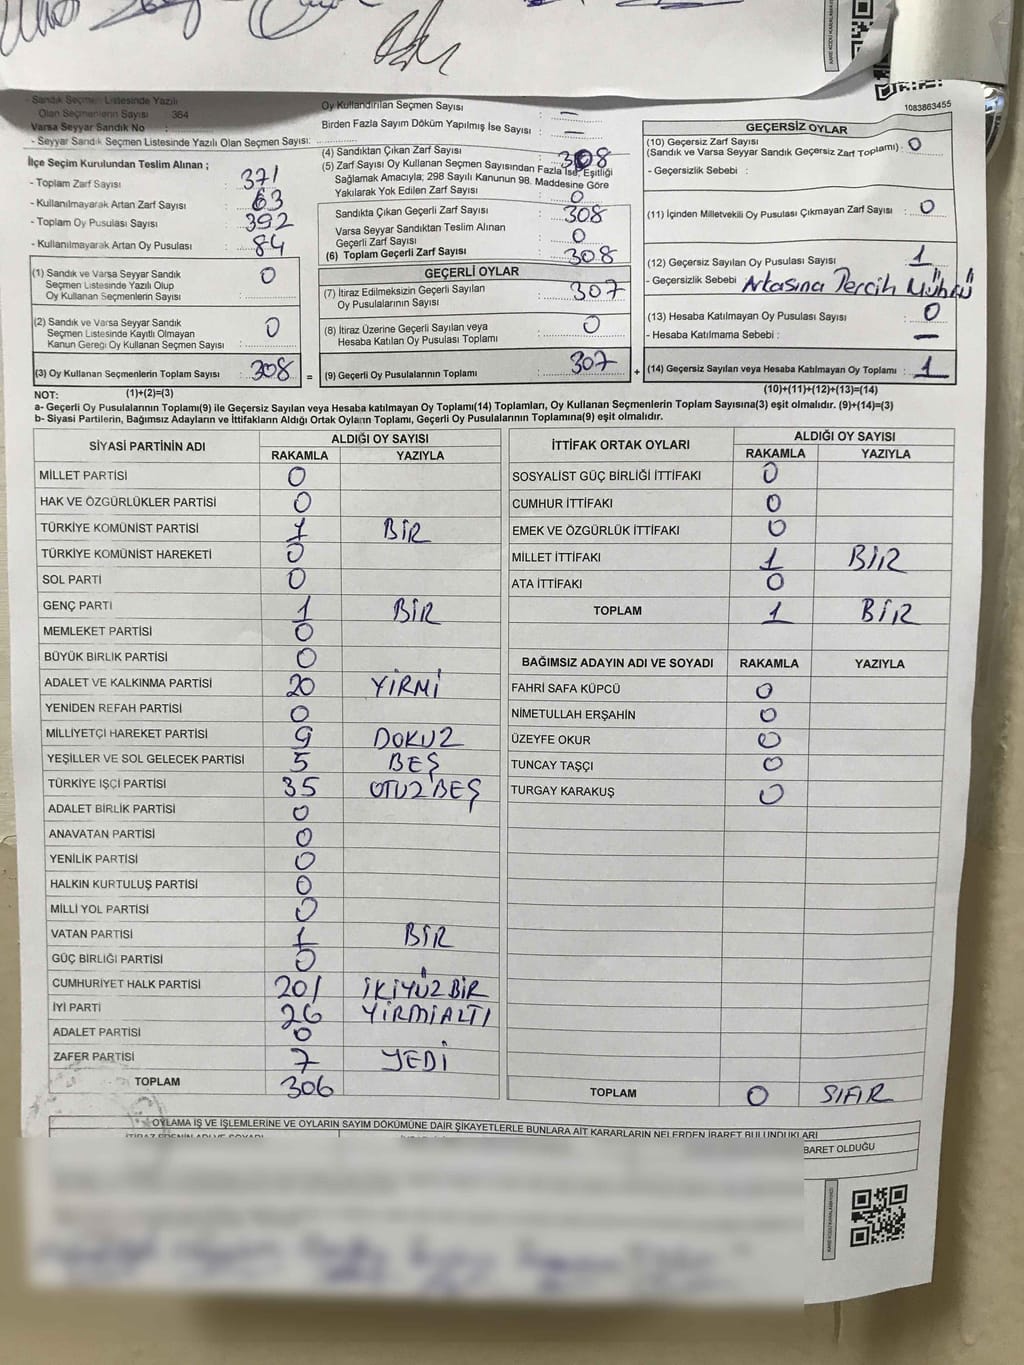 1083863455
- Sandık Seçmen Listesinde Yazılı
Olan Seçmenlerin Sayısı : 364
Varsa Seyyar Sandık No :
- Seyyar Sandık Seçmen Listesinde Yazılı Olan Seçmen Sayısı:
İlçe Seçim Kurulundan Teslim Alınan ;
- Toplam Zarf Sayısı : 371
- Kullanılmayarak Artan Zarf Sayısı : 63
- Toplam Oy Pusulası Sayısı : 392
- Kullanılmayarak Artan Oy Pusulası : 84
(1) Sandık ve Varsa Seyyar Sandık
Seçmen Listesinde Yazılı Olup
Oy Kullanan Seçmenlerin Sayısı : 0
(2) Sandık ve Varsa Seyyar Sandık
Seçmen Listesinde Kayıtlı Olmayan
Kanun Gereği Oy Kullanan Seçmen Sayısı : 0
(3) Oy Kullanan Seçmenlerin Toplam Sayısı : 308 =
Oy Kullandırılan Seçmen Sayısı : —
Birden Fazla Sayım Döküm Yapılmış İse Sayısı : —
(4) Sandıktan Çıkan Zarf Sayısı : 308
(5) Zarf Sayısı Oy Kullanan Seçmen Sayısından Fazla İse, Eşitliği
Sağlamak Amacıyla; 298 Sayılı Kanunun 98. Maddesine Göre
Yakılarak Yok Edilen Zarf Sayısı : 0
Sandıkta Çıkan Geçerli Zarf Sayısı : 308
Varsa Seyyar Sandıktan Teslim Alınan
Geçerli Zarf Sayısı : 0
(6) Toplam Geçerli Zarf Sayısı : 308
GEÇERLİ OYLAR
(7) İtiraz Edilmeksizin Geçerli Sayılan
Oy Pusulalarının Sayısı : 307
(8) İtiraz Üzerine Geçerli Sayılan veya
Hesaba Katılan Oy Pusulası Toplamı : 0
(9) Geçerli Oy Pusulalarının Toplamı : 307 +
GEÇERSİZ OYLAR
(10) Geçersiz Zarf Sayısı
(Sandık ve Varsa Seyyar Sandık Geçersiz Zarf Toplamı) : 0
- Geçersizlik Sebebi :
(11) İçinden Milletvekili Oy Pusulası Çıkmayan Zarf Sayısı : 0
(12) Geçersiz Sayılan Oy Pusulası Sayısı : 1
- Geçersizlik Sebebi : Arkasına Tercih Mührü
(13) Hesaba Katılmayan Oy Pusulası Sayısı : 0
- Hesaba Katılmama Sebebi : —
(14) Geçersiz Sayılan veya Hesaba Katılmayan Oy Toplamı : 1
NOT: (1)+(2)=(3) (10)+(11)+(12)+(13)=(14)
a- Geçerli Oy Pusulalarının Toplamı(9) ile Geçersiz Sayılan veya Hesaba katılmayan Oy Toplamı(14) Toplamları, Oy Kullanan Seçmenlerin Toplam Sayısına(3) eşit olmalıdır. (9)+(14)=(3)
b- Siyasi Partilerin, Bağımsız Adayların ve İttifakların Aldığı Ortak Oyların Toplamı, Geçerli Oy Pusulalarının Toplamına(9) eşit olmalıdır.
SİYASİ PARTİNİN ADI ALDIĞI OY SAYISI
RAKAMLA YAZIYLA
MİLLET PARTİSİ 0
HAK VE ÖZGÜRLÜKLER PARTİSİ 0
TÜRKİYE KOMÜNİST PARTİSİ 1 BİR
TÜRKİYE KOMÜNİST HAREKETİ 0
SOL PARTİ 0
GENÇ PARTİ 1 BİR
MEMLEKET PARTİSİ 0
BÜYÜK BİRLİK PARTİSİ 0
ADALET VE KALKINMA PARTİSİ 20 YİRMİ
YENİDEN REFAH PARTİSİ 0
MİLLİYETÇİ HAREKET PARTİSİ 9 DOKUZ
YEŞİLLER VE SOL GELECEK PARTİSİ 5 BEŞ
TÜRKİYE İŞÇİ PARTİSİ 35 OTUZ BEŞ
ADALET BİRLİK PARTİSİ 0
ANAVATAN PARTİSİ 0
YENİLİK PARTİSİ 0
HALKIN KURTULUŞ PARTİSİ 0
MİLLİ YOL PARTİSİ 0
VATAN PARTİSİ 1 BİR
GÜÇ BİRLİĞİ PARTİSİ 0
CUMHURİYET HALK PARTİSİ 201 İKİYÜZ BİR
İYİ PARTİ 26 YİRMİALTI
ADALET PARTİSİ 0
ZAFER PARTİSİ 7 YEDİ
TOPLAM 306
İTTİFAK ORTAK OYLARI ALDIĞI OY SAYISI
RAKAMLA YAZIYLA
SOSYALİST GÜÇ BİRLİĞİ İTTİFAKI 0
CUMHUR İTTİFAKI 0
EMEK VE ÖZGÜRLÜK İTTİFAKI 0
MİLLET İTTİFAKI 1 BİR
ATA İTTİFAKI 0
TOPLAM 1 BİR
BAĞIMSIZ ADAYIN ADI VE SOYADI RAKAMLA YAZIYLA
FAHRİ SAFA KÜPCÜ 0
NİMETULLAH ERŞAHİN 0
ÜZEYFE OKUR 0
TUNCAY TAŞÇI 0
TURGAY KARAKUŞ 0
TOPLAM 0 SIFIR
OYLAMA İŞ VE İŞLEMLERİNE VE OYLARIN SAYIM DÖKÜMÜNE DAİR ŞİKAYETLERLE BUNLARA AİT KARARLARIN NELERDEN İBARET BULUNDUKLARI
İTİRAZ EDENİN ADI VE SOYADI
BARET OLDUĞU